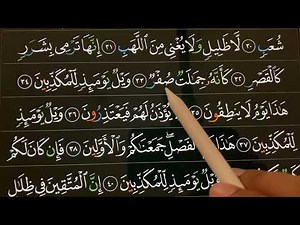 شُعَبٍ ٣٠ لَّا ظَلِيلٍ وَلَا يُغْنِي مِنَ اللَّهَبِ ٣١ إِنَّهَا تَرْمِي بِشَرَرٍ
كَالْقَصْرِ ٣٢ كَأَنَّهُ جِمَالَتٌ صُفْرٌ ٣٣ وَيْلٌ يَوْمَئِذٍ لِّلْمُكَذِّبِينَ ٣٤
هَٰذَا يَوْمُ لَا يَنطِقُونَ ٣٥ وَلَا يُؤْذَنُ لَهُمْ فَيَعْتَذِرُونَ ٣٦ وَيْلٌ يَوْمَئِذٍ
لِّلْمُكَذِّبِينَ ٣٧ هَٰذَا يَوْمُ الْفَصْلِ جَمَعْنَاكُمْ وَالْأَوَّلِينَ ٣٨ فَإِن كَانَ لَكُمْ
كَيْدٌ فَكِيدُونِ ٣٩ وَيْلٌ يَوْمَئِذٍ لِّلْمُكَذِّبِينَ ٤٠ إِنَّ الْمُتَّقِينَ فِي ظِلَالٍ